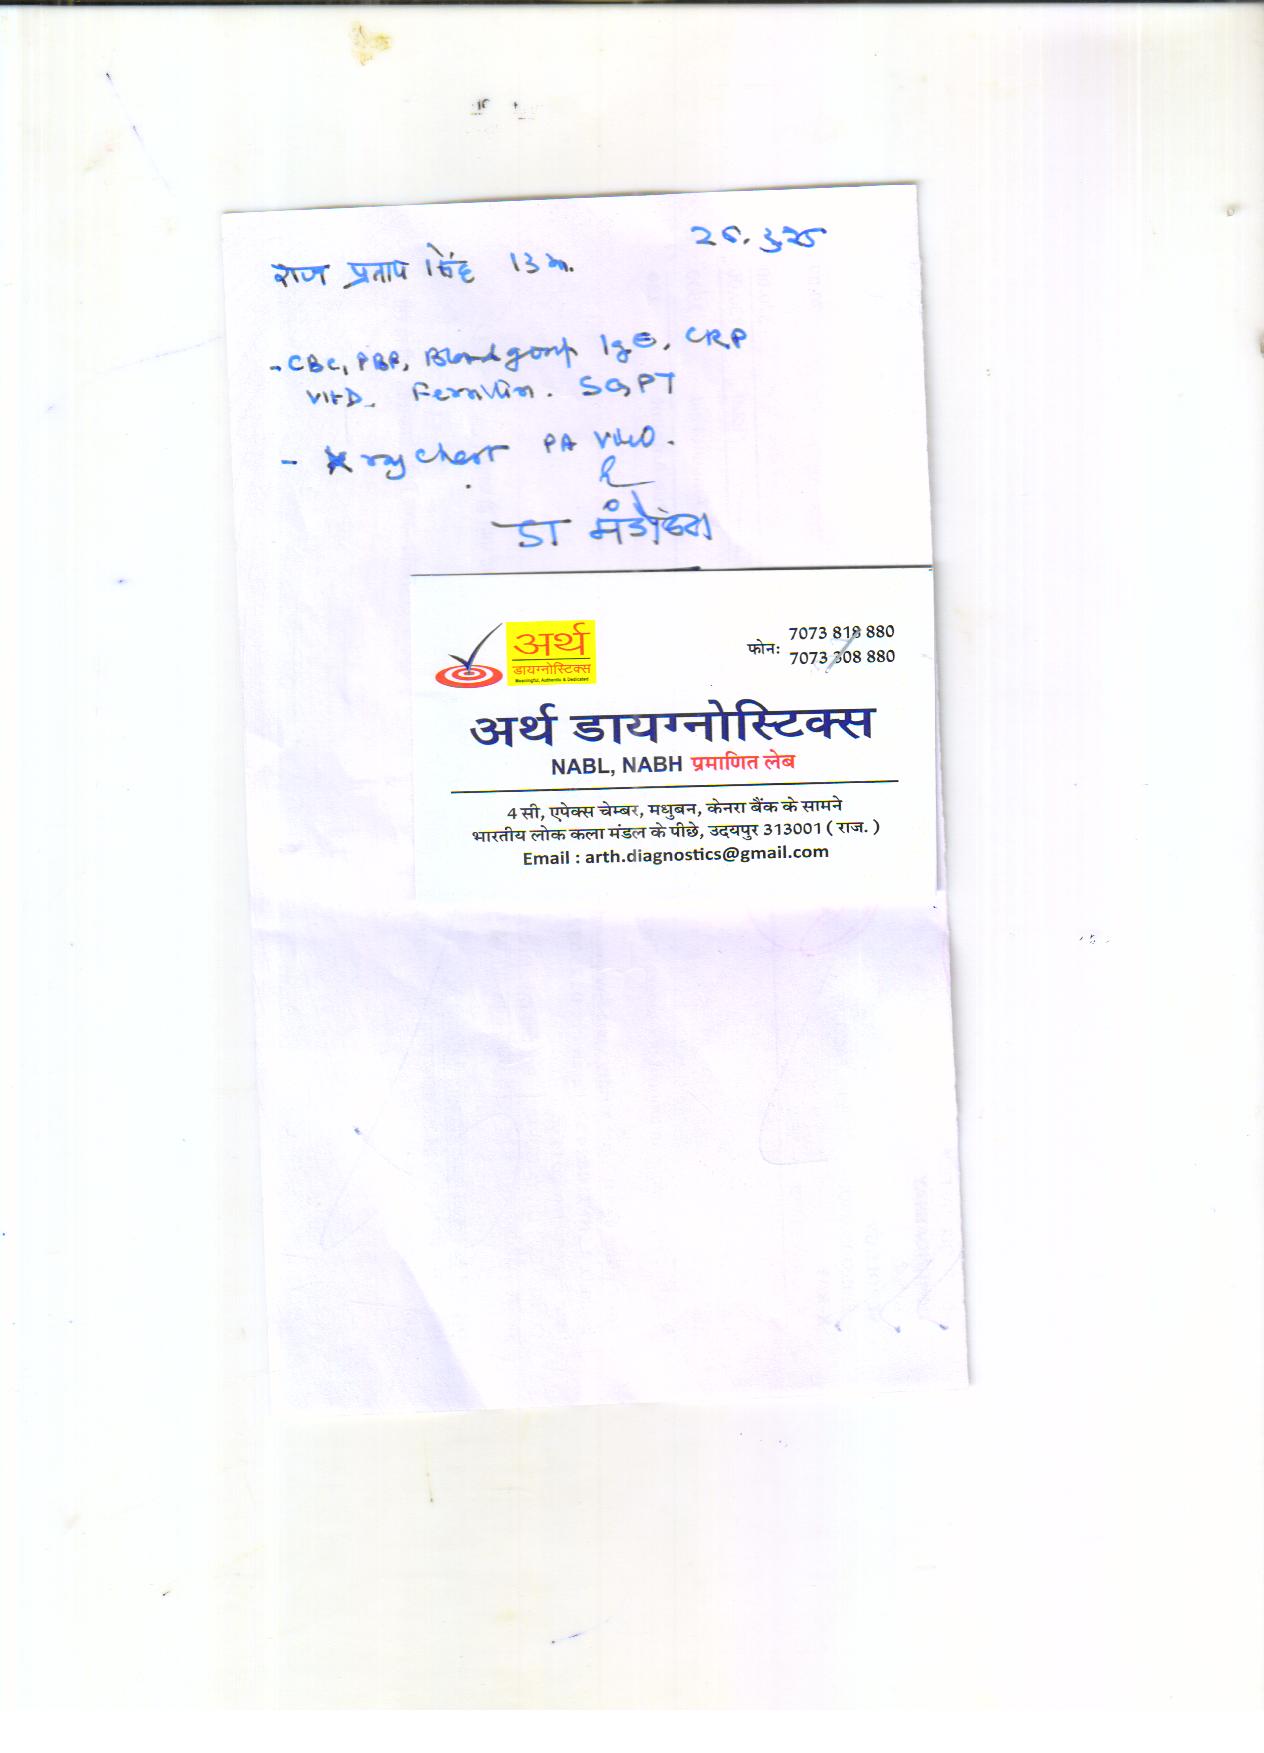 राज प्रताप सिंह 13 
- CBC, PBF, Blood group IgE, CRP
Vit D. Ferritin. SGPT
- X ray Chest PA View.
डा
अर्थ
डायग्नोस्टिक्स
Meaningful, Authentic & Dedicated
फोन: 7073 818 880
7073 308 880
अर्थ डायग्नोस्टिक्स
NABL, NABH प्रमाणित लेब
4 सी, एपेक्स चेम्बर, मधुबन, केनरा बैंक के सामने
भारतीय लोक कला मंडल के पीछे, उदयपुर 313001 ( राज. )
Email : arth.diagnostics@gmail.com